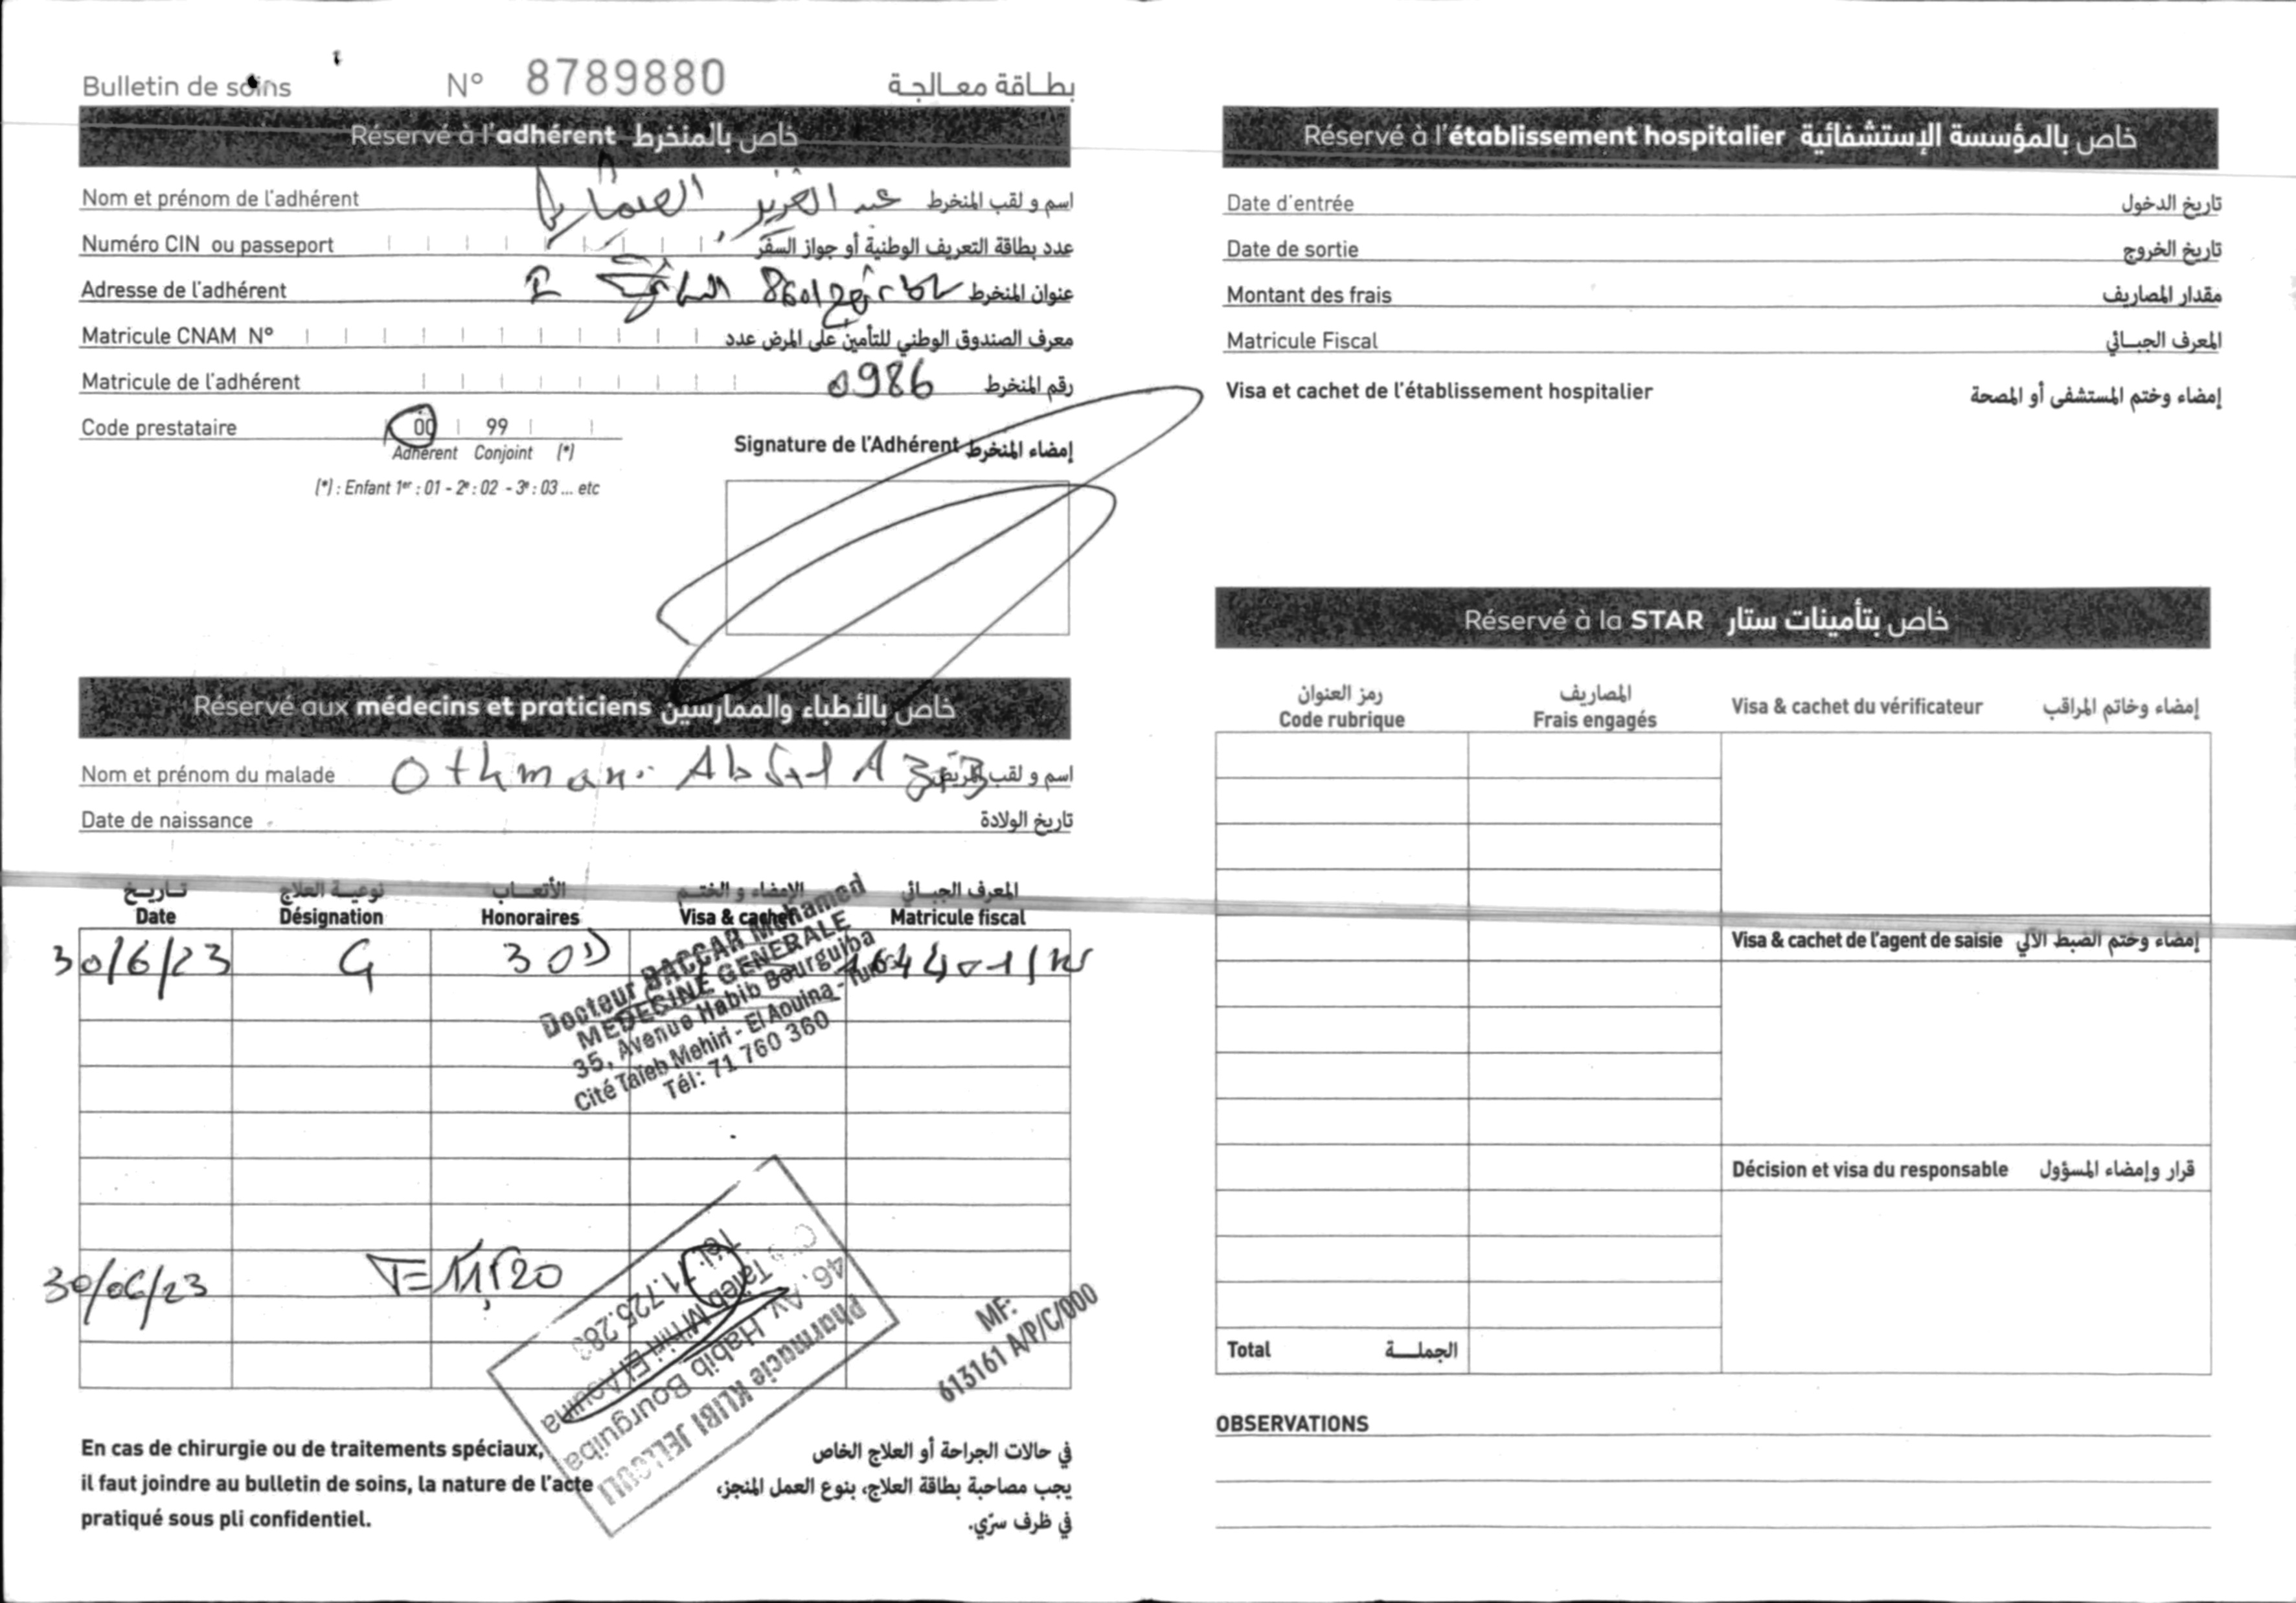 Bulletin de soins N° 8789880 بطاقة معالجة
Réservé à l'adhérent خاص بالمنخرط
Nom et prénom de l'adhérent عبد العزيز العثماني اسم و لقب المنخرط
Numéro CIN ou passeport عدد بطاقة التعريف الوطنية أو جواز السفر
Adresse de l'adhérent عنوان المنخرط
Matricule CNAM N° معرف الصندوق الوطني للتأمين على المرض عدد
Matricule de l'adhérent 0986 رقم المنخرط
Code prestataire 00 99
Adhérent Conjoint (*)
(*) : Enfant 1er : 01 - 2e : 02 - 3e : 03 ... etc
Signature de l'Adhérent إمضاء المنخرط
Réservé aux médecins et praticiens خاص بالأطباء والممارسين
Nom et prénom du malade Othmani Abdel Aziz اسم و لقب المريض
Date de naissance تاريخ الولادة
تاريخ نوعية العلاج الأتعاب الإمضاء و الختم المعرف الجبائي
Date Désignation Honoraires Visa & cachet Matricule fiscal
30/6/23 G 30D
Docteur BACCAR Mohamed
MEDECINE GENERALE
35, Avenue Habib Bourguiba
Cité Taïeb Mehiri - El Aouina - Tunis
Tél: 71 760 360
30/06/23
Pharmacie KLIBI JELLOULI
46, Av. Habib Bourguiba
Taïeb Mhiri El Aouina
MF:
613161 A/P/C/000
En cas de chirurgie ou de traitements spéciaux,
il faut joindre au bulletin de soins, la nature de l'acte
pratiqué sous pli confidentiel.
في حالات الجراحة أو العلاج الخاص
يجب مصاحبة بطاقة العلاج، بنوع العمل المنجز،
في ظرف سرّي.
Réservé à l'établissement hospitalier خاص بالمؤسسة الإستشفائية
Date d'entrée تاريخ الدخول
Date de sortie تاريخ الخروج
Montant des frais مقدار المصاريف
Matricule Fiscal المعرف الجبائي
Visa et cachet de l'établissement hospitalier إمضاء وختم المستشفى أو المصحة
Réservé à la STAR خاص بتأمينات ستار
رمز العنوان المصاريف
Code rubrique Frais engagés Visa & cachet du vérificateur إمضاء وخاتم المراقب
Visa & cachet de l'agent de saisie إمضاء وختم الضبط الآلي
Décision et visa du responsable قرار وإمضاء المسؤول
Total الجملة
OBSERVATIONS